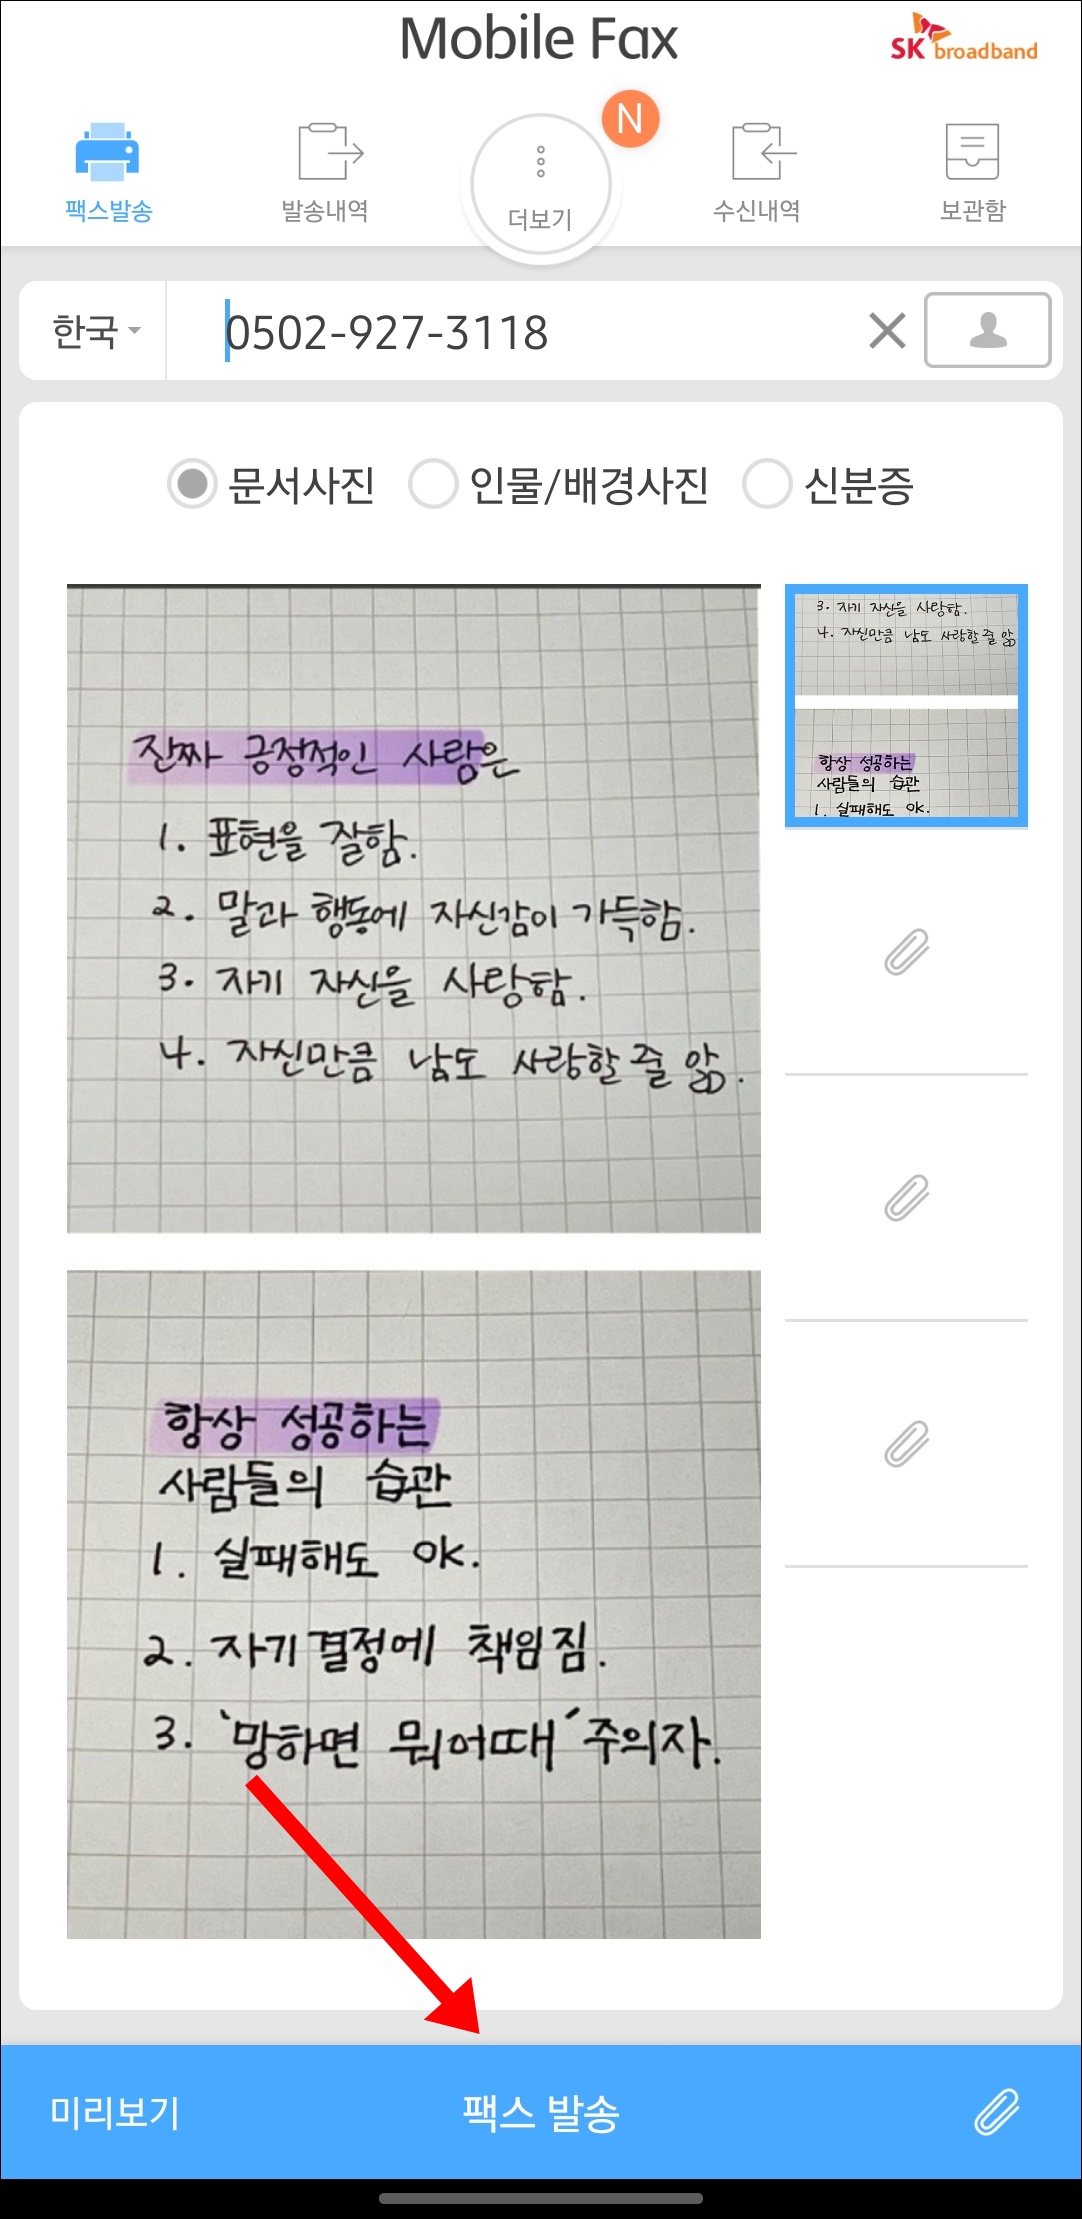 Mobile Fax
SK broadband
N
팩스발송
발송내역
더보기
수신내역
보관함
한국
0502-927-3118
문서사진
인물/배경사진
신분증
진짜 긍정적인 사람은
1. 표현을 잘함.
2. 말과 행동에 자신감이 가득함.
3. 자기 자신을 사랑함.
4. 자신만큼 남도 사랑할 줄 앎.
3. 자기 자신을 사랑함.
4. 자신만큼 남도 사랑할 줄 앎
항상 성공하는
사람들의 습관
1. 실패해도 ok.
항상 성공하는
사람들의 습관
1. 실패해도 ok.
2. 자기 결정에 책임짐.
3. '망하면 뭐어때' 주의자.
미리보기
팩스 발송